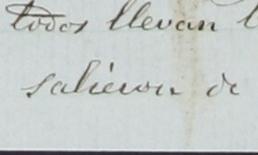 todos llevan l
salieron de